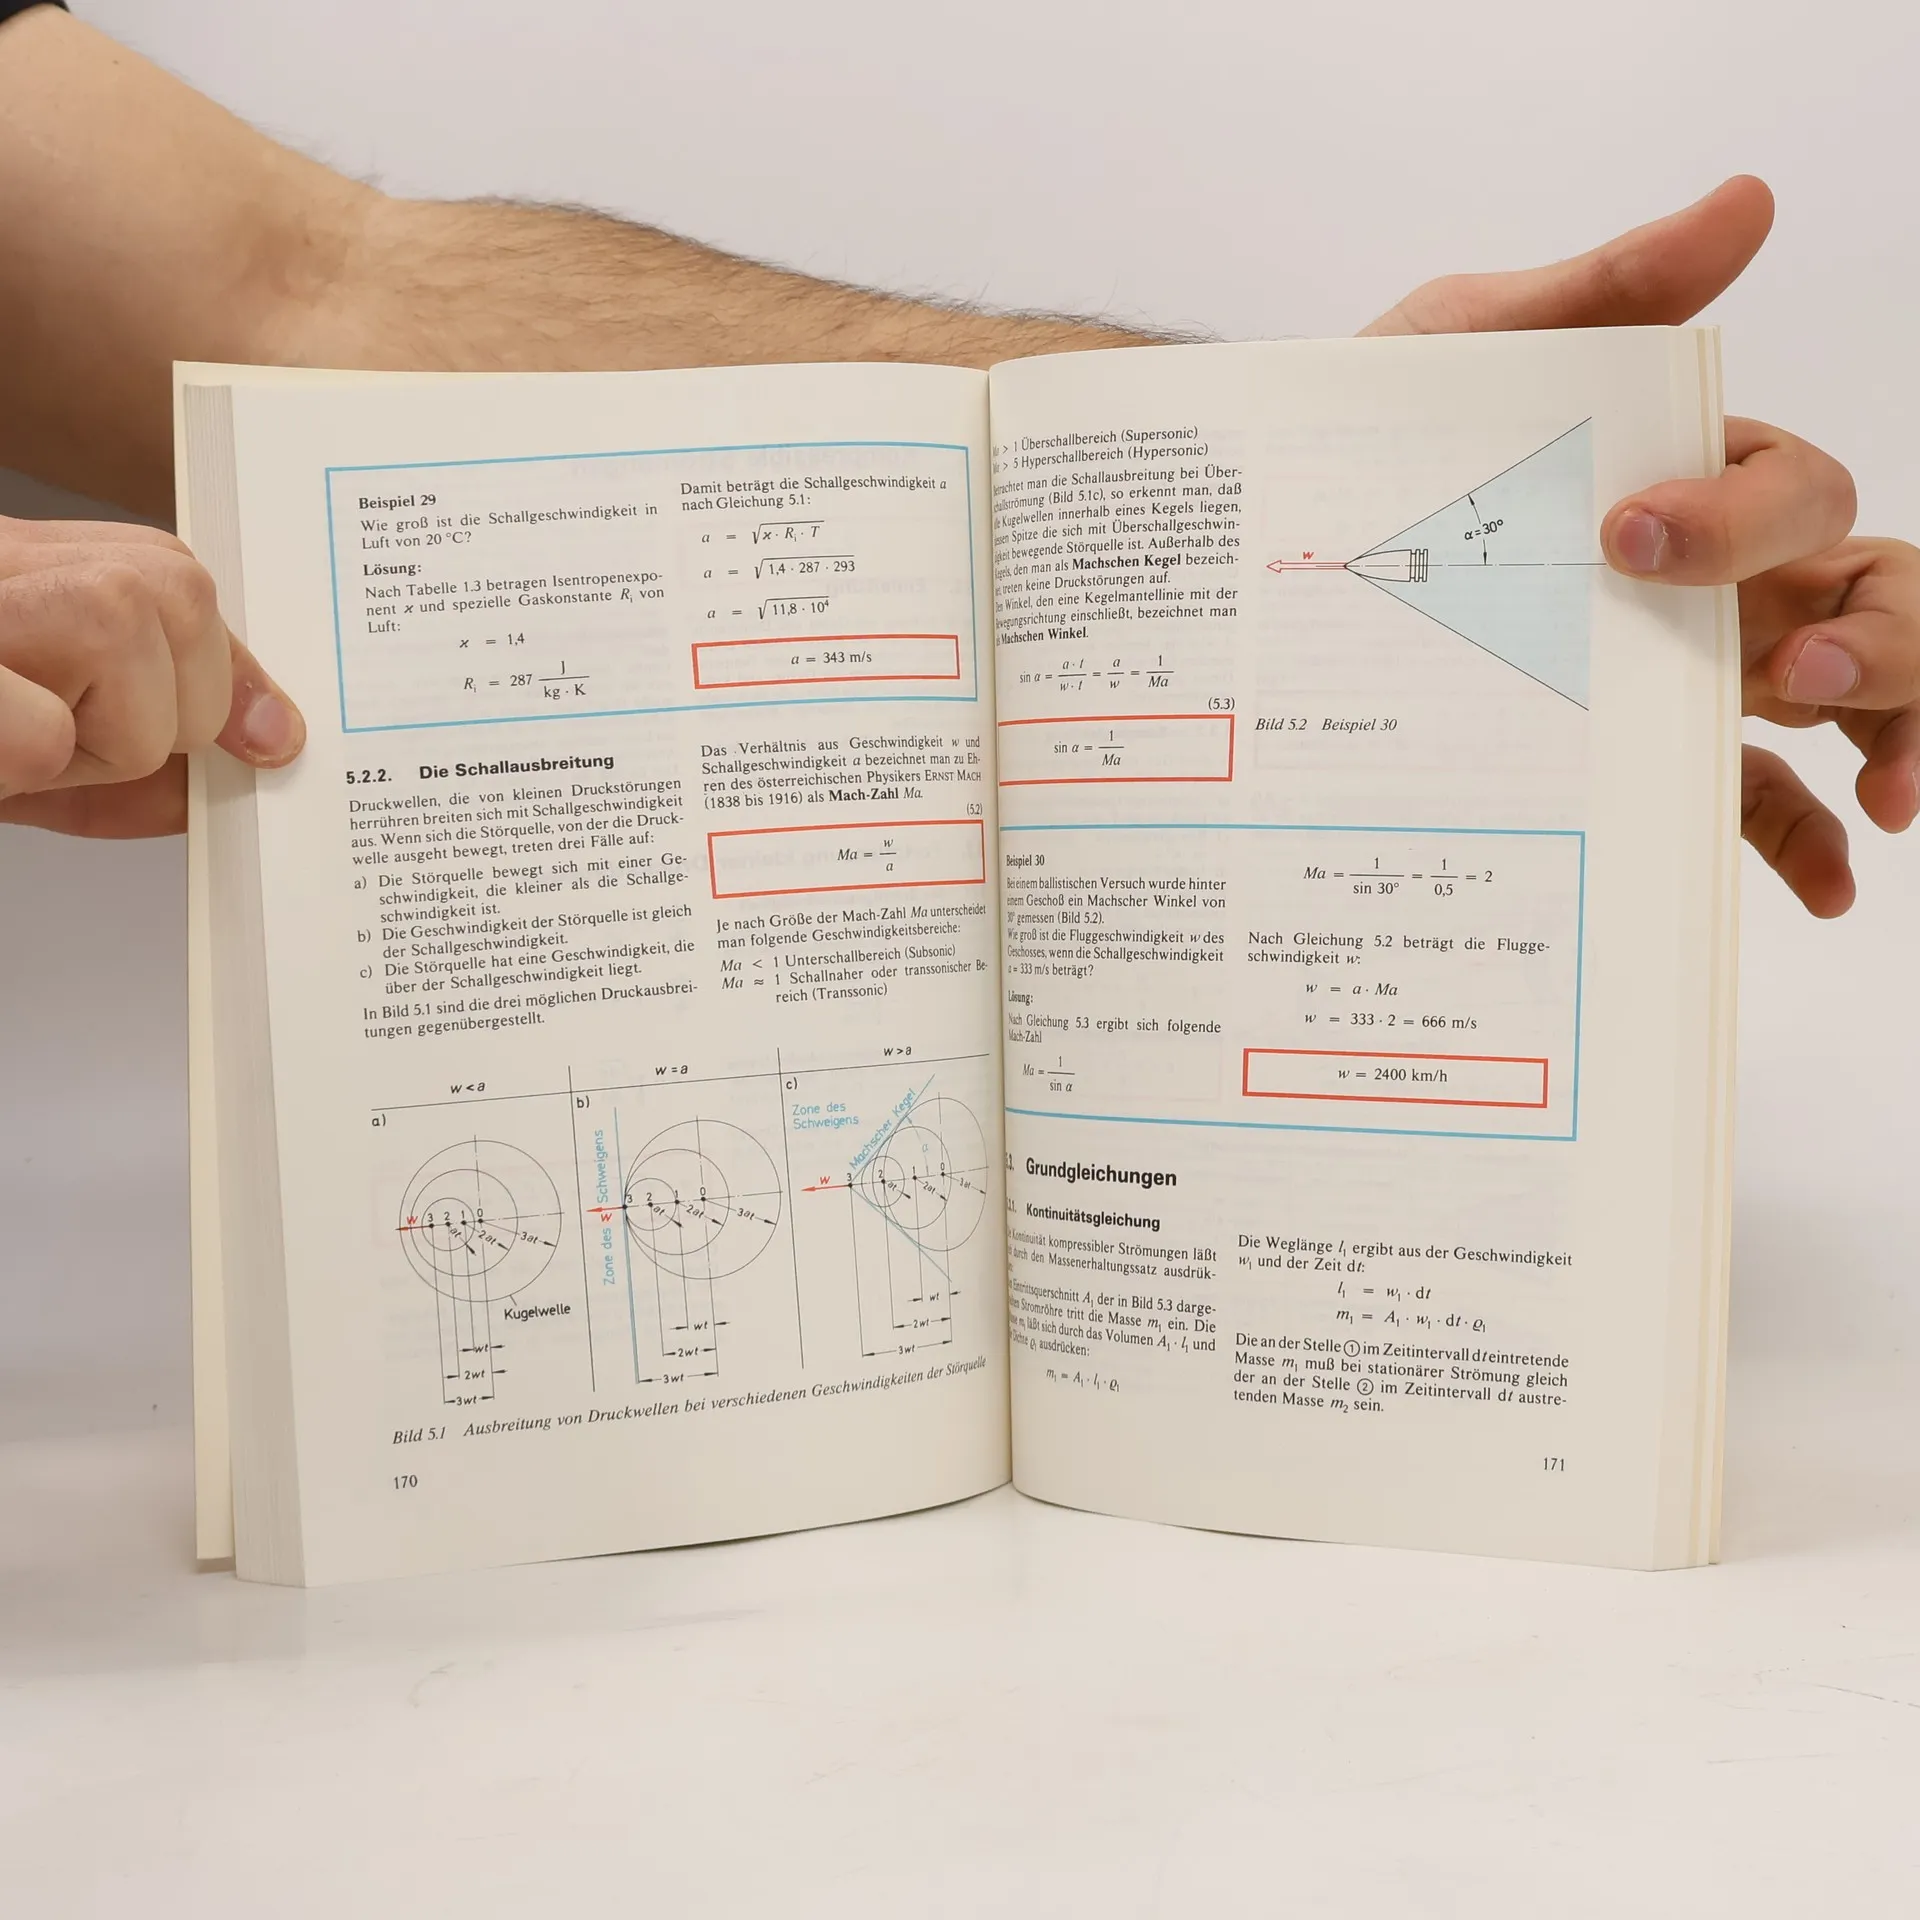 Beispiel 29
Wie groß ist die Schallgeschwindigkeit in
Luft von 20 °C?
Lösung:
Nach Tabelle 1.3 betragen Isentropenexpo-
nent ϰ und spezielle Gaskonstante Rᵢ von
Luft:
ϰ = 1,4
Rᵢ = 287 J / kg · K
Damit beträgt die Schallgeschwindigkeit a
nach Gleichung 5.1:
a = √ϰ · Rᵢ · T
a = √1,4 · 287 · 293
a = √11,8 · 10⁴
a = 343 m/s
5.2.2. Die Schallausbreitung
Druckwellen, die von kleinen Druckstörungen
herrühren breiten sich mit Schallgeschwindigkeit
aus. Wenn sich die Störquelle, von der die Druck-
welle ausgeht bewegt, treten drei Fälle auf:
a) Die Störquelle bewegt sich mit einer Ge-
schwindigkeit, die kleiner als die Schallge-
schwindigkeit ist.
b) Die Geschwindigkeit der Störquelle ist gleich
der Schallgeschwindigkeit.
c) Die Störquelle hat eine Geschwindigkeit, die
über der Schallgeschwindigkeit liegt.
In Bild 5.1 sind die drei möglichen Druckausbrei-
tungen gegenübergestellt.
Das Verhältnis aus Geschwindigkeit w und
Schallgeschwindigkeit a bezeichnet man zu Eh-
ren des österreichischen Physikers ERNST MACH
(1838 bis 1916) als Mach-Zahl Ma.
(5.2)
Ma = w / a
Je nach Größe der Mach-Zahl Ma unterscheidet
man folgende Geschwindigkeitsbereiche:
Ma < 1 Unterschallbereich (Subsonic)
Ma ≈ 1 Schallnaher oder transsonischer Be-
reich (Transsonic)
w < a
a)
w 3 2 1 0
at 2at 3at
Kugelwelle
wt
2wt
3wt
w = a
b)
Zone des Schweigens
w 3 2 1 0
at 2at 3at
wt
2wt
3wt
w > a
c)
Zone des
Schweigens
Machscher Kegel
α
w 3 2 1 0
at 2at 3at
wt
2wt
3wt
Bild 5.1 Ausbreitung von Druckwellen bei verschiedenen Geschwindigkeiten der Störquelle
170
> 1 Überschallbereich (Supersonic)
> 5 Hyperschallbereich (Hypersonic)
man die Schallausbreitung bei Über-
(Bild 5.1c), so erkennt man, daß
Kugelwellen innerhalb eines Kegels liegen,
Spitze die sich mit Überschallgeschwin-
bewegende Störquelle ist. Außerhalb des
den man als Machschen Kegel bezeich-
treten keine Druckstörungen auf.
Winkel, den eine Kegelmantellinie mit der
einschließt, bezeichnet man
Machschen Winkel.
sin α = a · t / w · t = a / w = 1 / Ma
(5.3)
sin α = 1 / Ma
w
α = 30°
Bild 5.2 Beispiel 30
Beispiel 30
Bei einem ballistischen Versuch wurde hinter
einem Geschoß ein Machscher Winkel von
30° gemessen (Bild 5.2).
Wie groß ist die Fluggeschwindigkeit w des
Geschosses, wenn die Schallgeschwindigkeit
a = 333 m/s beträgt?
Lösung:
Nach Gleichung 5.3 ergibt sich folgende
Mach-Zahl
Ma = 1 / sin α
Ma = 1 / sin 30° = 1 / 0,5 = 2
Nach Gleichung 5.2 beträgt die Flugge-
schwindigkeit w:
w = a · Ma
w = 333 · 2 = 666 m/s
w = 2400 km/h
Grundgleichungen
Kontinuitätsgleichung
Kontinuität kompressibler Strömungen läßt
durch den Massenerhaltungssatz ausdrük-
A₁ der in Bild 5.3 darge-
Stromröhre tritt die Masse m₁ ein. Die
läßt sich durch das Volumen A₁ · l₁ und
ϱ₁ ausdrücken:
m₁ = A₁ · l₁ · ϱ₁
Die Weglänge l₁ ergibt aus der Geschwindigkeit
w₁ und der Zeit dt:
l₁ = w₁ · dt
m₁ = A₁ · w₁ · dt · ϱ₁
Die an der Stelle ① im Zeitintervall dt eintretende
Masse m₁ muß bei stationärer Strömung gleich
der an der Stelle ② im Zeitintervall dt austre-
tenden Masse m₂ sein.
171